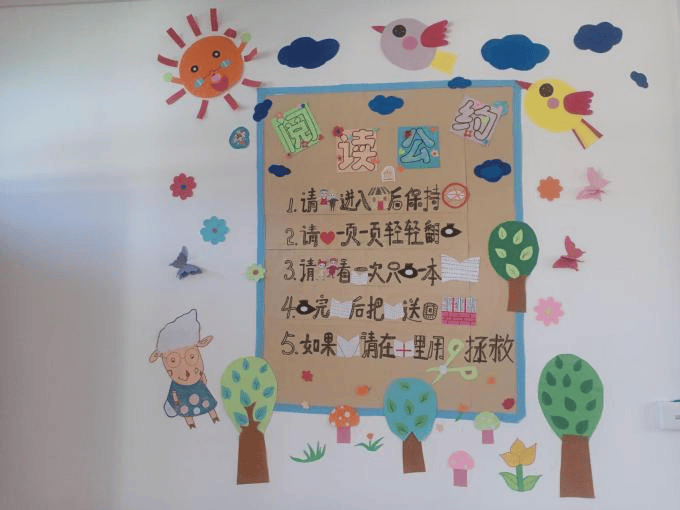 阅读公约
1.请进入后保持
2.请一页一页轻轻翻
3.请看一次只一本
4.完后把送回
5.如果请在里用拯救